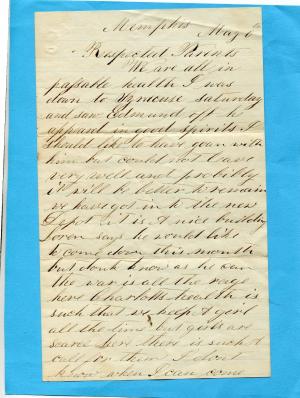 Memphis May 6th
Respected Parents
We are all in
passable health I was
down to Syracuse Saturday
and saw Edmund off he
appeard in good Spirits I
should like to have goan with
him but could not leave
very well and probibly
it will be better to remain
we have got in to the new
Depot it is A nice building
Loren says he would like
to come down this month
but dont know as he can
the war is all the rage
here Charlotts health is
such that we keep A girl
all the time but girls are
scarce here there is such A
call for them I dont
know when I can come